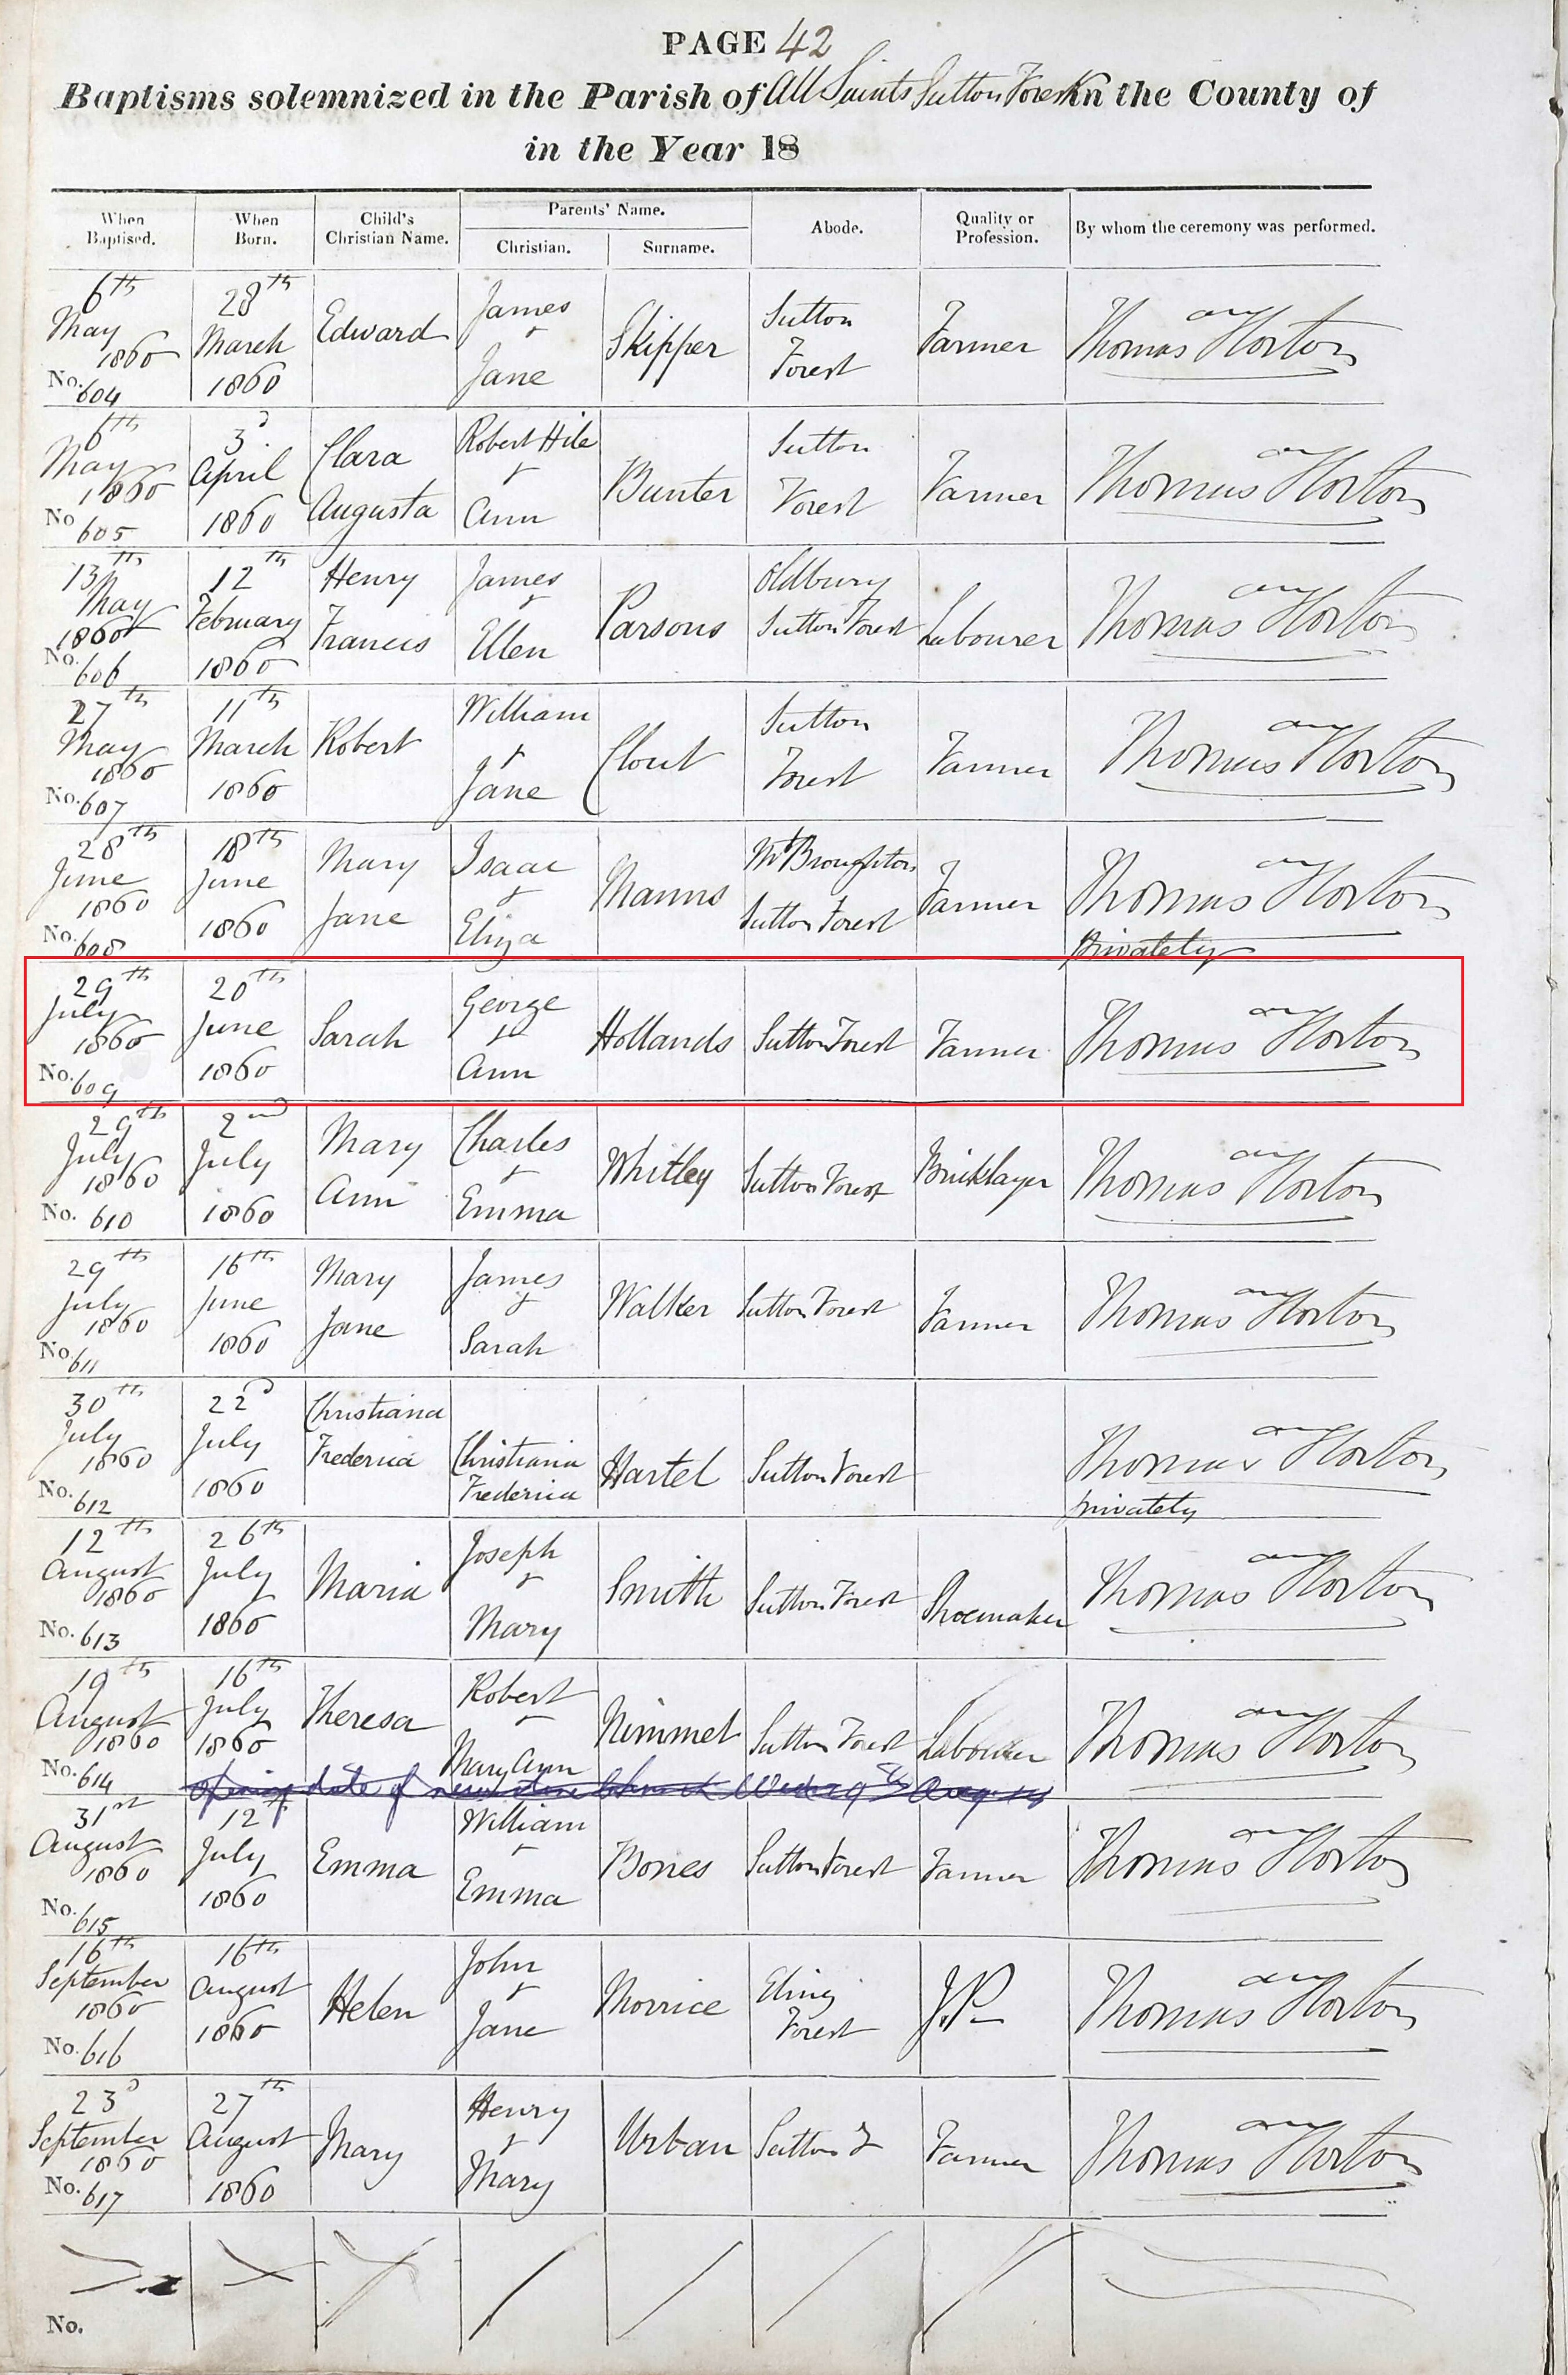 PAGE 42
Baptisms solemnized in the Parish of All Saints Sutton Forest in the County of
in the Year 18
When Baptised. When Born. Child's Christian Name. Parents' Name. Christian. Surname. Abode. Quality or Profession. By whom the ceremony was performed.
6th May 1860 No. 604 28th March 1860 Edward James & Jane Skipper Sutton Forest Farmer Thomas Horton
6th May 1860 No 605 3d April 1860 Clara Augusta Robert Hile & Ann Bunter Sutton Forest Farmer Thomas Horton
13th May 1860 No. 606 12th February 1860 Henry Francis James & Ellen Parsons Oldbury Sutton Forest Labourer Thomas Horton
27th May 1860 No. 607 11th March 1860 Robert William & Jane Clout Sutton Forest Farmer Thomas Horton
28th June 1860 No. 608 18th June 1860 Mary Jane Isaac & Eliza Manns Mt Broughton Sutton Forest Farmer Thomas Horton privately
29th July 1860 No. 609 20th June 1860 Sarah George & Ann Hollands Sutton Forest Farmer Thomas Horton
29th July 1860 No. 610 2nd July 1860 Mary Ann Charles & Emma Whitley Sutton Forest Bricklayer Thomas Horton
29th July 1860 No. 611 16th June 1860 Mary Jane James & Sarah Walker Sutton Forest Farmer Thomas Horton
30th July 1860 No. 612 22d July 1860 Christiana Frederica Christiana Frederica Hartel Sutton Forest Thomas Horton privately
12th August 1860 No. 613 26th July 1860 Maria Joseph & Mary Smith Sutton Forest Shoemaker Thomas Horton
19th August 1860 No. 614 16th July 1860 Theresa Robert & Mary Ann Nimmet Sutton Forest Labourer Thomas Horton
Opening date of new stone Church
31st August 1860 No. 615 12th July 1860 Emma William & Emma Bones Sutton Forest Farmer Thomas Horton
16th September 1860 No. 616 16th August 1860 Helen John & Jane Morrice Eling Forest J.P. Thomas Horton
23d September 1860 No. 617 27th August 1860 Mary Henry & Mary Urban Sutton F Farmer Thomas Horton
No.